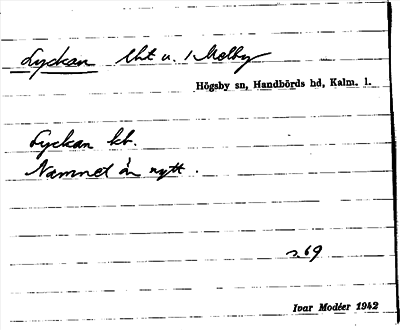 Lyckan lht u. 1 Melby
Högsby sn, Handbörds hd, Kalm. l.
Lyckan kb.
Namnet är nytt.
s. 69
Ivar Modéer 1942